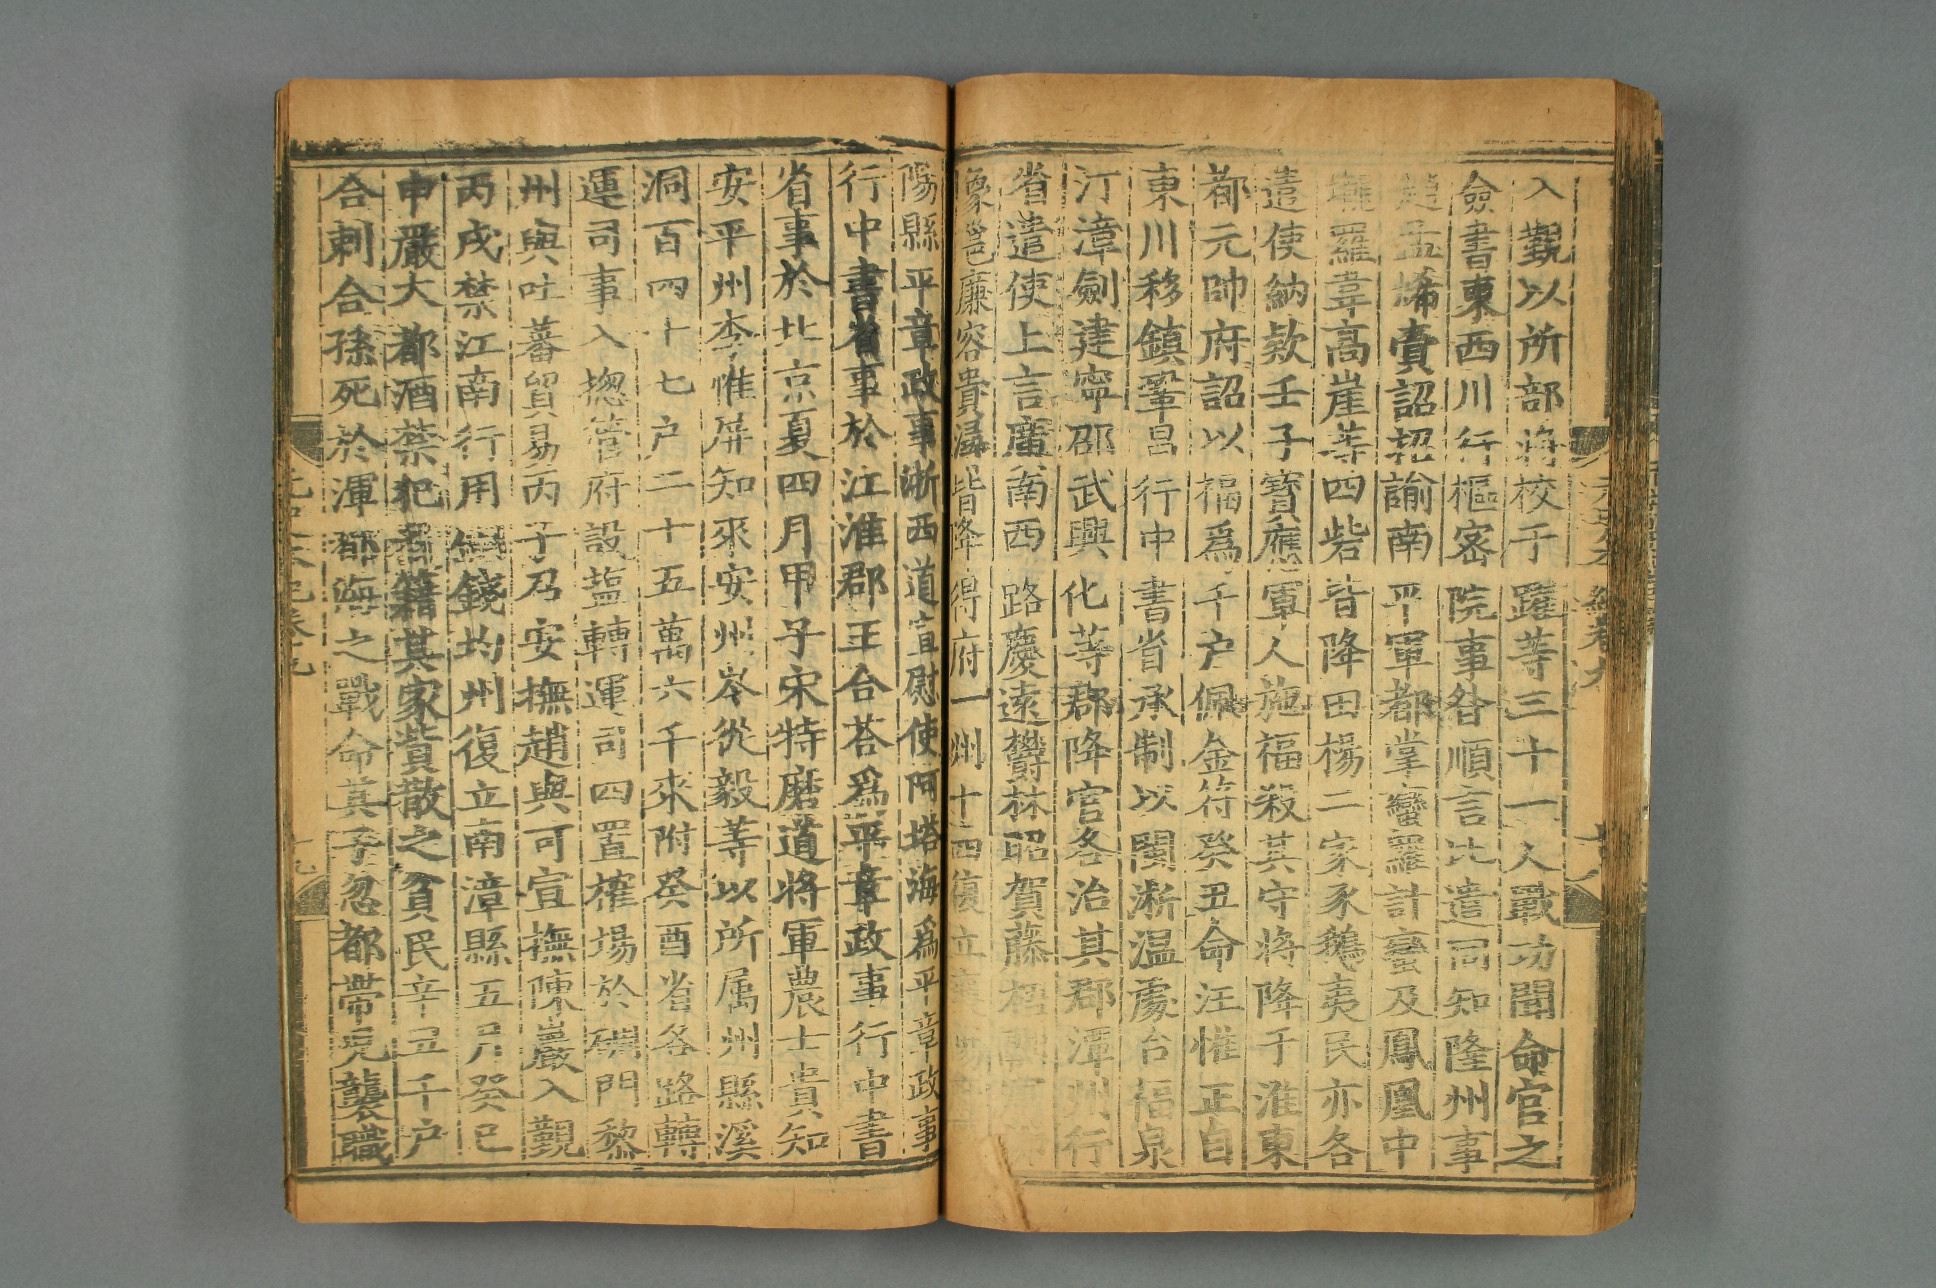 入覲以所部將校于躍等三十一人戰功聞命官之
僉書東西川行樞密院事昝順言比遣同知隆州事
趙孟烯賫詔招諭南平軍都掌蠻羅計蠻及鳳凰中
壠羅韋高崖等四砦皆降田楊二家豕鵝夷民亦各
遣使納欵壬子寳應軍人施福殺其守將降于淮東
都元帥府詔以福爲千户佩金符癸丑命汪惟正自
東川移鎮鞏昌行中書省承制以閩浙温處台福泉
汀漳劍建寧邵武興化等郡降官各治其郡潭州行
省遣使上言廣南西路慶遠欝林昭賀藤梧
象邕廉容貴潯皆降得府一州十四復立
陽縣平章政事浙西道宣慰使阿塔海爲平章政事
行中書省事於江淮郡王合荅爲平章政事行中書
省事於北京夏四月甲子宋特磨道將軍農士貴知
安平州李惟屏知來安州岑從毅等以所属州縣溪
洞百四十七户二十五萬六千來附癸酉省各路轉
運司事入摠管府設盐轉運司四置榷場於碉門黎
州與吐蕃貿易丙子乃安撫趙與可宣撫陳巖入覲
丙戌禁江南行用銅錢均州復立南漳縣五月癸巳
申嚴大都酒禁犯者籍其家貲散之貧民辛丑千户
合剌合孫死於渾都海之戰命其子忽都帶兒襲職
元史本紀卷九
十九